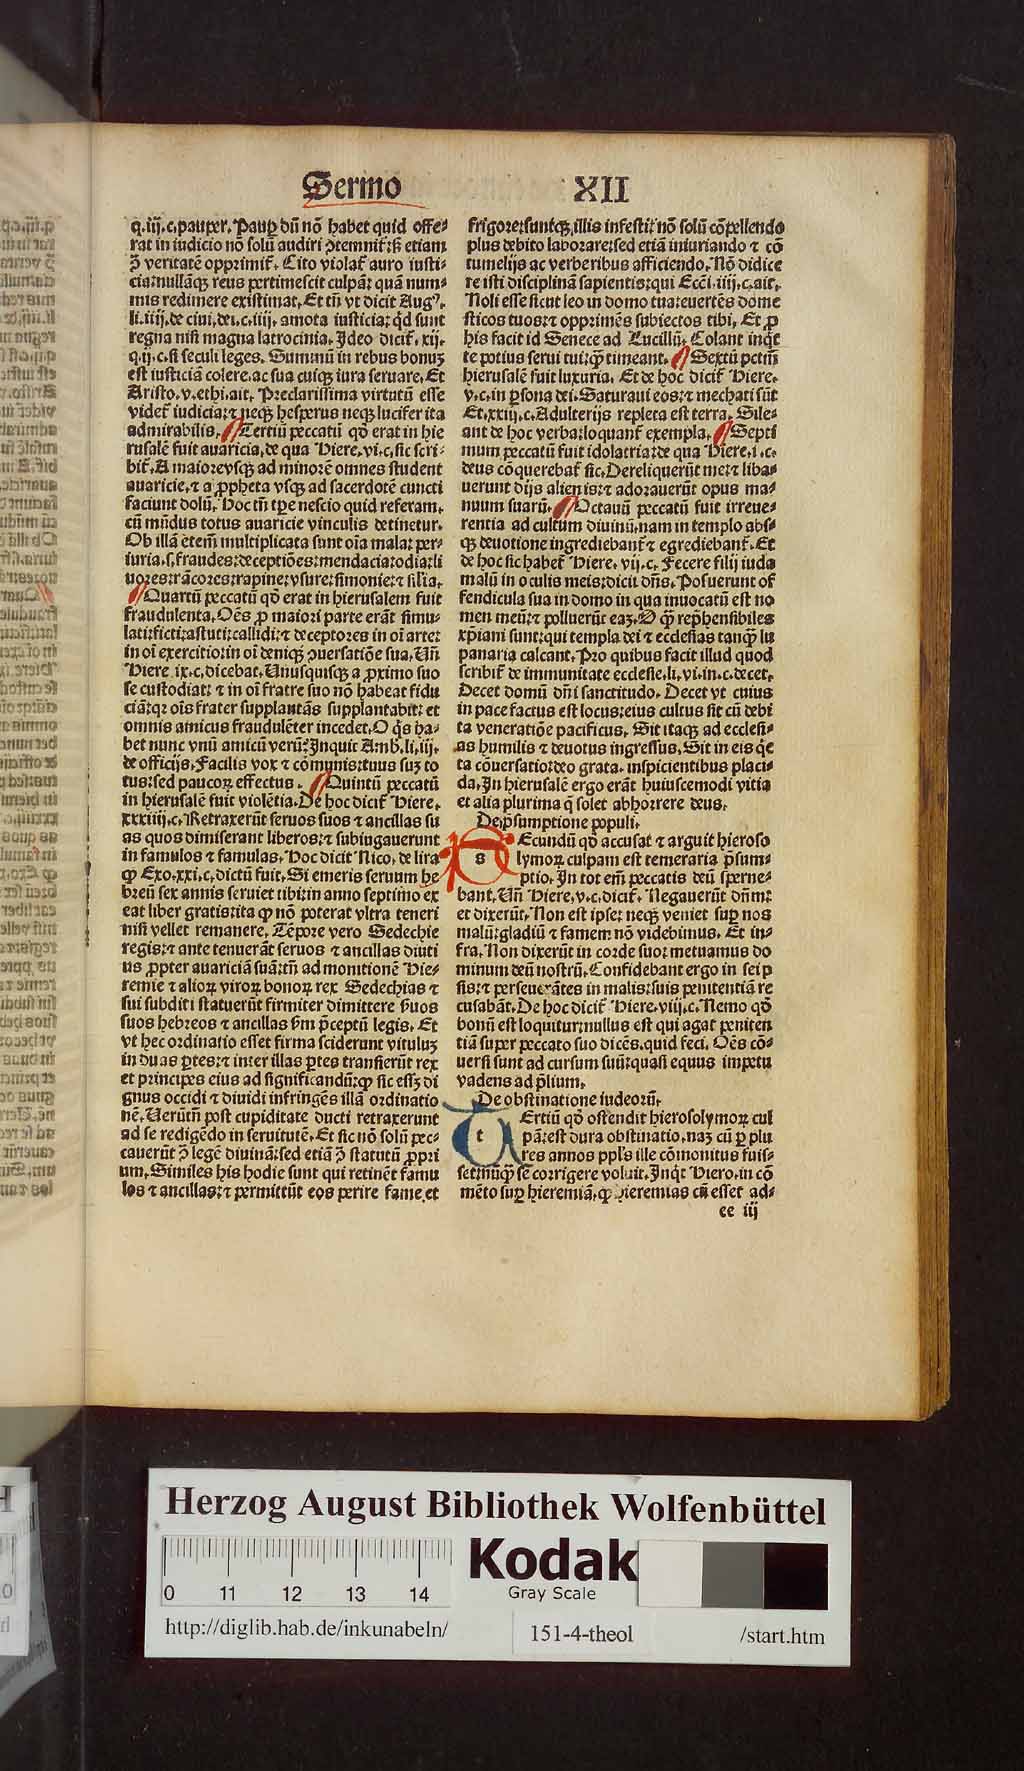 Sermo XII
q.iij.c.pauper. Paup̄ dū nō habet quid offe-
rat in iudicio nō solū audiri ꝯtemnit̄: sꝫ etiam
ꝯ veritatē opprimit̄. Cito violat̄ auro iusti-
cia: nullāqꝫ reus pertimescit culpā: quā num-
mis redimere existimat. Et tn̄ vt dicit Augꝰ.
li.iiij.de ciui.dei.c.iiij. amota iusticia: qd sunt
regna nisi magna latrocinia. Ideo dicit̄. xij.
q.ij.c.si seculi leges. Summū in rebus bonuꝫ
est iusticiā colere. ac sua cuiqꝫ iura seruare. Et
Aristo.v.ethi.ait. Preclarissima virtutū esse
videt̄ iudicia: ⁊ neqꝫ hesperus neqꝫ lucifer ita
admirabilis. Tertiū peccatū qd̄ erat in hie
rusalē fuit auaricia. de qua Hiere.vi.c. sic scri-
bit̄. A maiore vsqꝫ ad minorē omnes student
auaricie. ⁊ a ꝓpheta vsqꝫ ad sacerdotē cuncti
faciunt dolū. Hoc tn̄ tp̄e nescio quid referam.
cū mūdus totus auaricie vinculis detinetur.
Ob illā etem̄ multiplicata sunt oīa mala: per-
iuria.s.fraudes: deceptiōes: mendacia: odia: li
uores: rācores: rapine: vsure: simonie: ⁊ siĺia.
Quartū peccatū qd̄ erat in hierusalem fuit
fraudulenta. Oēs ꝓ maiori parte erāt simu-
lati: ficti: astuti: callidi: ⁊ deceptores in oī arte:
in oī exercitio: in oī deniqꝫ ꝯuersatiōe sua. Vn̄
Hiere.ix.c. dicebat. Unusquisqꝫ a ꝓximo suo
se custodiat: ⁊ in oī fratre suo nō habeat fidu
ciā: qꝛ oīs frater supplantās supplantabit: et
omnis amicus fraudulēter incedet. O qͥs ha-
bet nunc vnū amicū verū: Inquit Amb.li.iij.
de officijs. Facilis vox ⁊ cōmunis: tuus suꝫ to
tus: sed paucoꝝ effectus. Quintū peccatū
in hierusalē fuit violētia. De hoc dicit̄ Hiere.
xxxiiij.c. Retraxerūt seruos suos ⁊ ancillas su
as quos dimiserant liberos: ⁊ subiugauerunt
in famulos ⁊ famulas. Hoc dicit Nico. de lira
ꝙ Exo.xxi.c. dictū fuit. Si emeris seruum he
breū sex annis seruiet tibi: in anno septimo ex
eat liber gratis: ita ꝙ nō poterat vltra teneri
nisi vellet remanere. Tēpore vero Sedechie
regis: ⁊ ante tenuerāt seruos ⁊ ancillas diuti
us ꝓpter auariciā suā: tn̄ ad monitionē Hie-
remie ⁊ alioꝝ viroꝝ bonoꝝ rex Sedechias ⁊
sui subditi statuerūt firmiter dimittere s̄uos
suos hebreos ⁊ ancillas s̄m p̄ceptū legis. Et
vt hec ordinatio esset firma sciderunt vituluꝫ
in duas ꝑtes: ⁊ inter illas ꝑtes transierūt rex
et principes eius ad significandū: ꝙ sic esset di
gnus occidi ⁊ diuidi infringēs illā ordinatio
nē. Uerūtn̄ post cupiditate ducti retraxerunt
ad se redigēdo in seruitutē. Et sic nō solū pec-
cauerūt ꝯ legē diuinā: sed etiā ꝯ statutū ꝓpri
um. Similes his hodie sunt qui retinēt famu
los ⁊ ancillas: ⁊ permittūt eos perire fame. et
frigore: suntqꝫ illis infesti: nō solū cōpellendo
plus debito laborare: sed etiā iniuriando ⁊ cō
tumelijs ac verberibus afficiendo. Nō didice
re isti disciplinā sapientis: qui Ecci.iiij.c.ait.
Noli esse sicut leo in domo tua: euertēs dome
sticos tuos: ⁊ opprimēs subiectos tibi. Et ꝓ
his facit id Senece ad Lucillū. Colant inqͥt
te potius serui tui: qͣꝫ timeant. Sextū pctm̄
hierusalē fuit luxuria. Et de hoc dicit̄ Hiere.
v.c. in ꝑsona dei. Saturaui eos: ⁊ mechati sūt
Et.xxiij.c. Adulterijs repleta est terra. Sile-
ant de hoc verba: loquant̄ exempla. Septi
mum peccatū fuit idolatria: de qua Hiere.i.c.
deus cōquerebat̄ sic. Dereliquerūt me: ⁊ liba-
uerunt dijs alienis: ⁊ adorauerūt opus ma-
nuum suarū. Octauū peccatū fuit irreue-
rentia ad cultum diuinū. nam in templo abs-
qꝫ deuotione ingrediebant̄ ⁊ egrediebant̄. Et
de hoc sic habet̄ Hiere.vij.c. Fecere filij iuda
malū in oculis meis: dicit dn̄s. Posuerunt of
fendicula sua in domo in qua inuocatū est no
men meū: ⁊ polluerūt eaꝫ. O qͣꝫ rep̄hensibiles
xp̄iani sunt: qui templa dei ⁊ ecclesias tanqͣꝫ lu
panaria calcant. Pro quibus facit illud quod
scribit̄ de immunitate ecclesie.li.vi.in.c.decet.
Decet domū dn̄i sanctitudo. Decet vt cuius
in pace factus est locus: eius cultus sit cū debi
ta veneratiōe pacificus. Sit itaqꝫ ad ecclesi-
as humilis ⁊ deuotus ingressus. Sit in eis qͥe
ta cōuersatio: deo grata. inspicientibus placi-
da. In hierusalē ergo erāt huiuscemodi vitia
et alia plurima q̄ solet abhorrere deus.
De p̄sumptione populi.
s Ecundū qd̄ accusat ⁊ arguit hieroso
lymoꝝ culpam est temeraria p̄sum-
ptio. In tot em̄ peccatis deū sperne-
bant. Vn̄ Hiere.v.c.dicit̄. Negauerūt dn̄m:
et dixerūt. Non est ipse: neqꝫ veniet sup̄ nos
malū: gladiū ⁊ famem nō videbimus. Et in-
fra. Non dixerūt in corde suo: metuamus do
minum deū nostrū. Confidebant ergo in sei p
sis: ⁊ perseuerātes in malis: suis penitentiā re
cusabāt. De hoc dicit̄ Hiere.viij.c. Nemo qd̄
bonū est loquitur: nullus est qui agat peniten
tiā super peccato suo dicēs. quid feci. Oēs cō-
uersi sunt ad cursum suū: quasi equus impetu
vadens ad p̄lium.
De obstinatione iudeorū.
t Ertiū qd̄ ostendit hierosolymoꝝ cul
pā: est dura obstinatio. naꝫ cū ꝑ plu
res annos ppl̄s ille cōmonitus fuis-
set: nūqͣꝫ se corrigere voluit. Inqͥt Hiero. in cō
mēto sup̄ hieremiā. ꝙ hieremias cū esset ad-
ee iij
Herzog August Bibliothek Wolfenbüttel
0 11 12 13 14
Kodak
Gray Scale
http://diglib.hab.de/inkunabeln/ 151-4-theol /start.htm